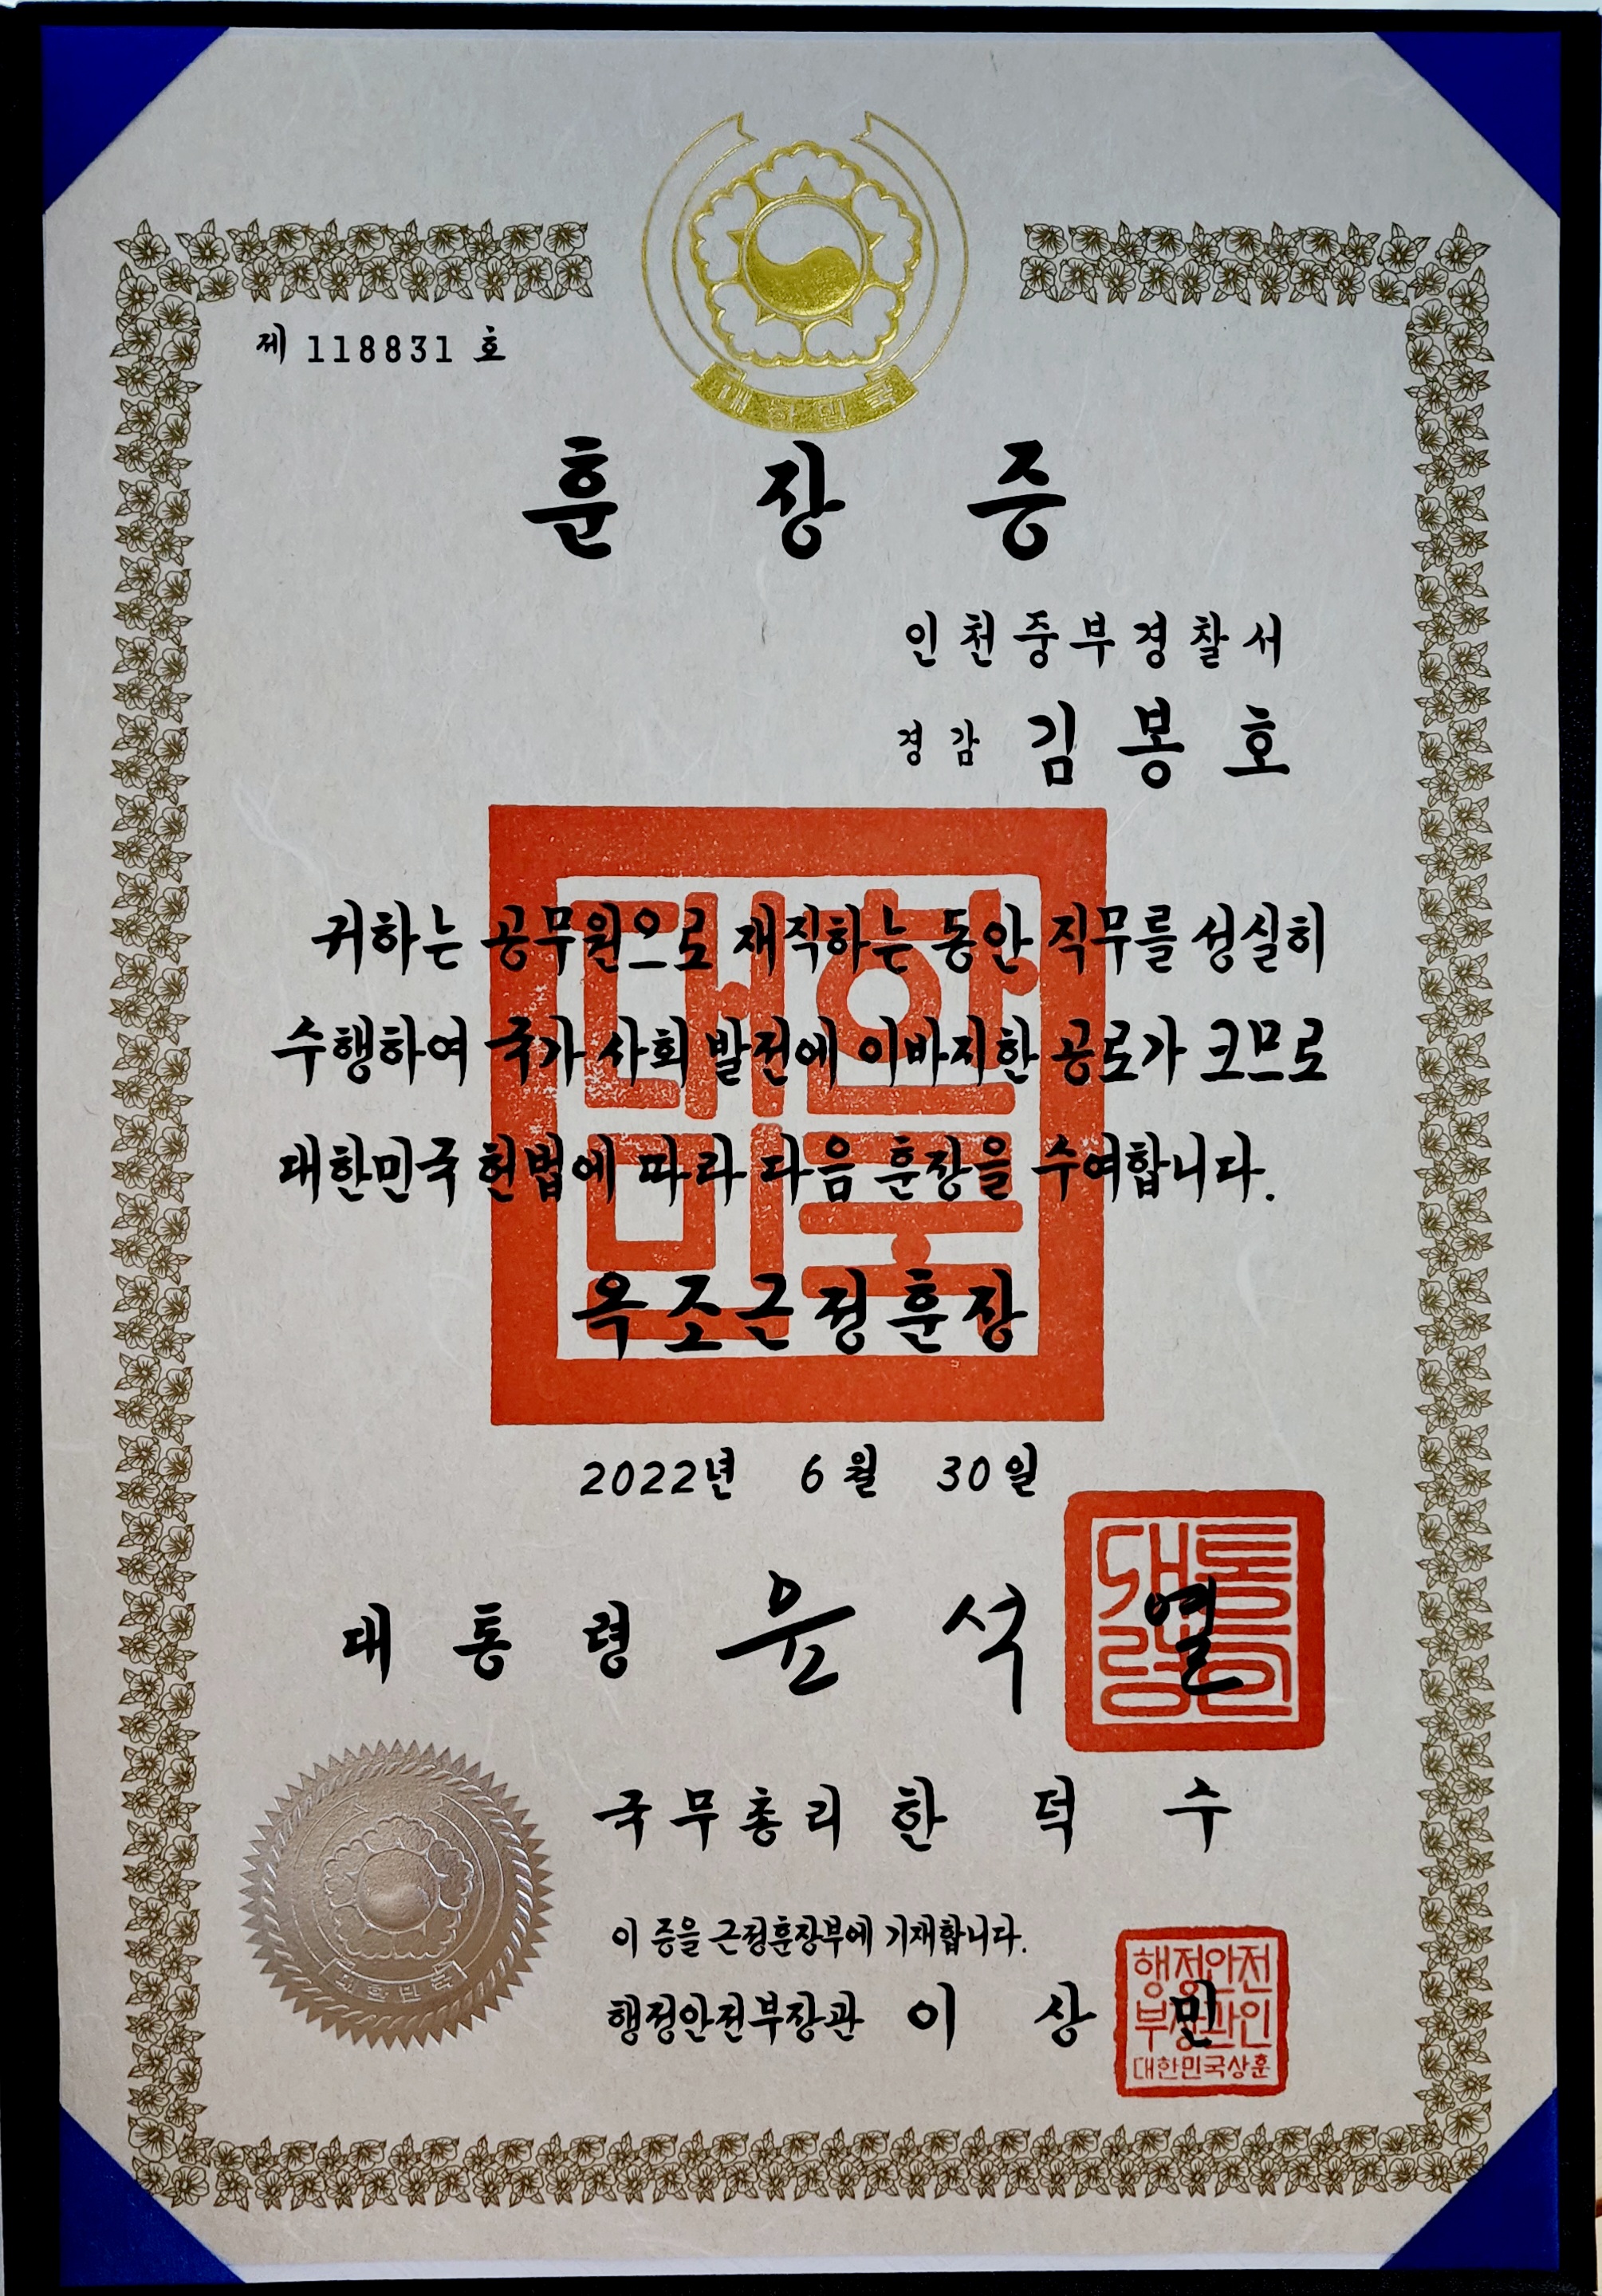 대한민국
제 118831 호
훈장증
인천중부경찰서
경감 김봉호
귀하는 공무원으로 재직하는 동안 직무를 성실히
수행하여 국가 사회 발전에 이바지한 공로가 크므로
대한민국 헌법에 따라 다음 훈장을 수여합니다.
옥조근정훈장
대한
민국
2022년 6월 30일
대통령 윤석열
대통
령인
국무총리 한덕수
이 증을 근정훈장부에 기재합니다.
행정안전부장관 이상민
행정안전
부장관인
대한민국상훈
대한민국